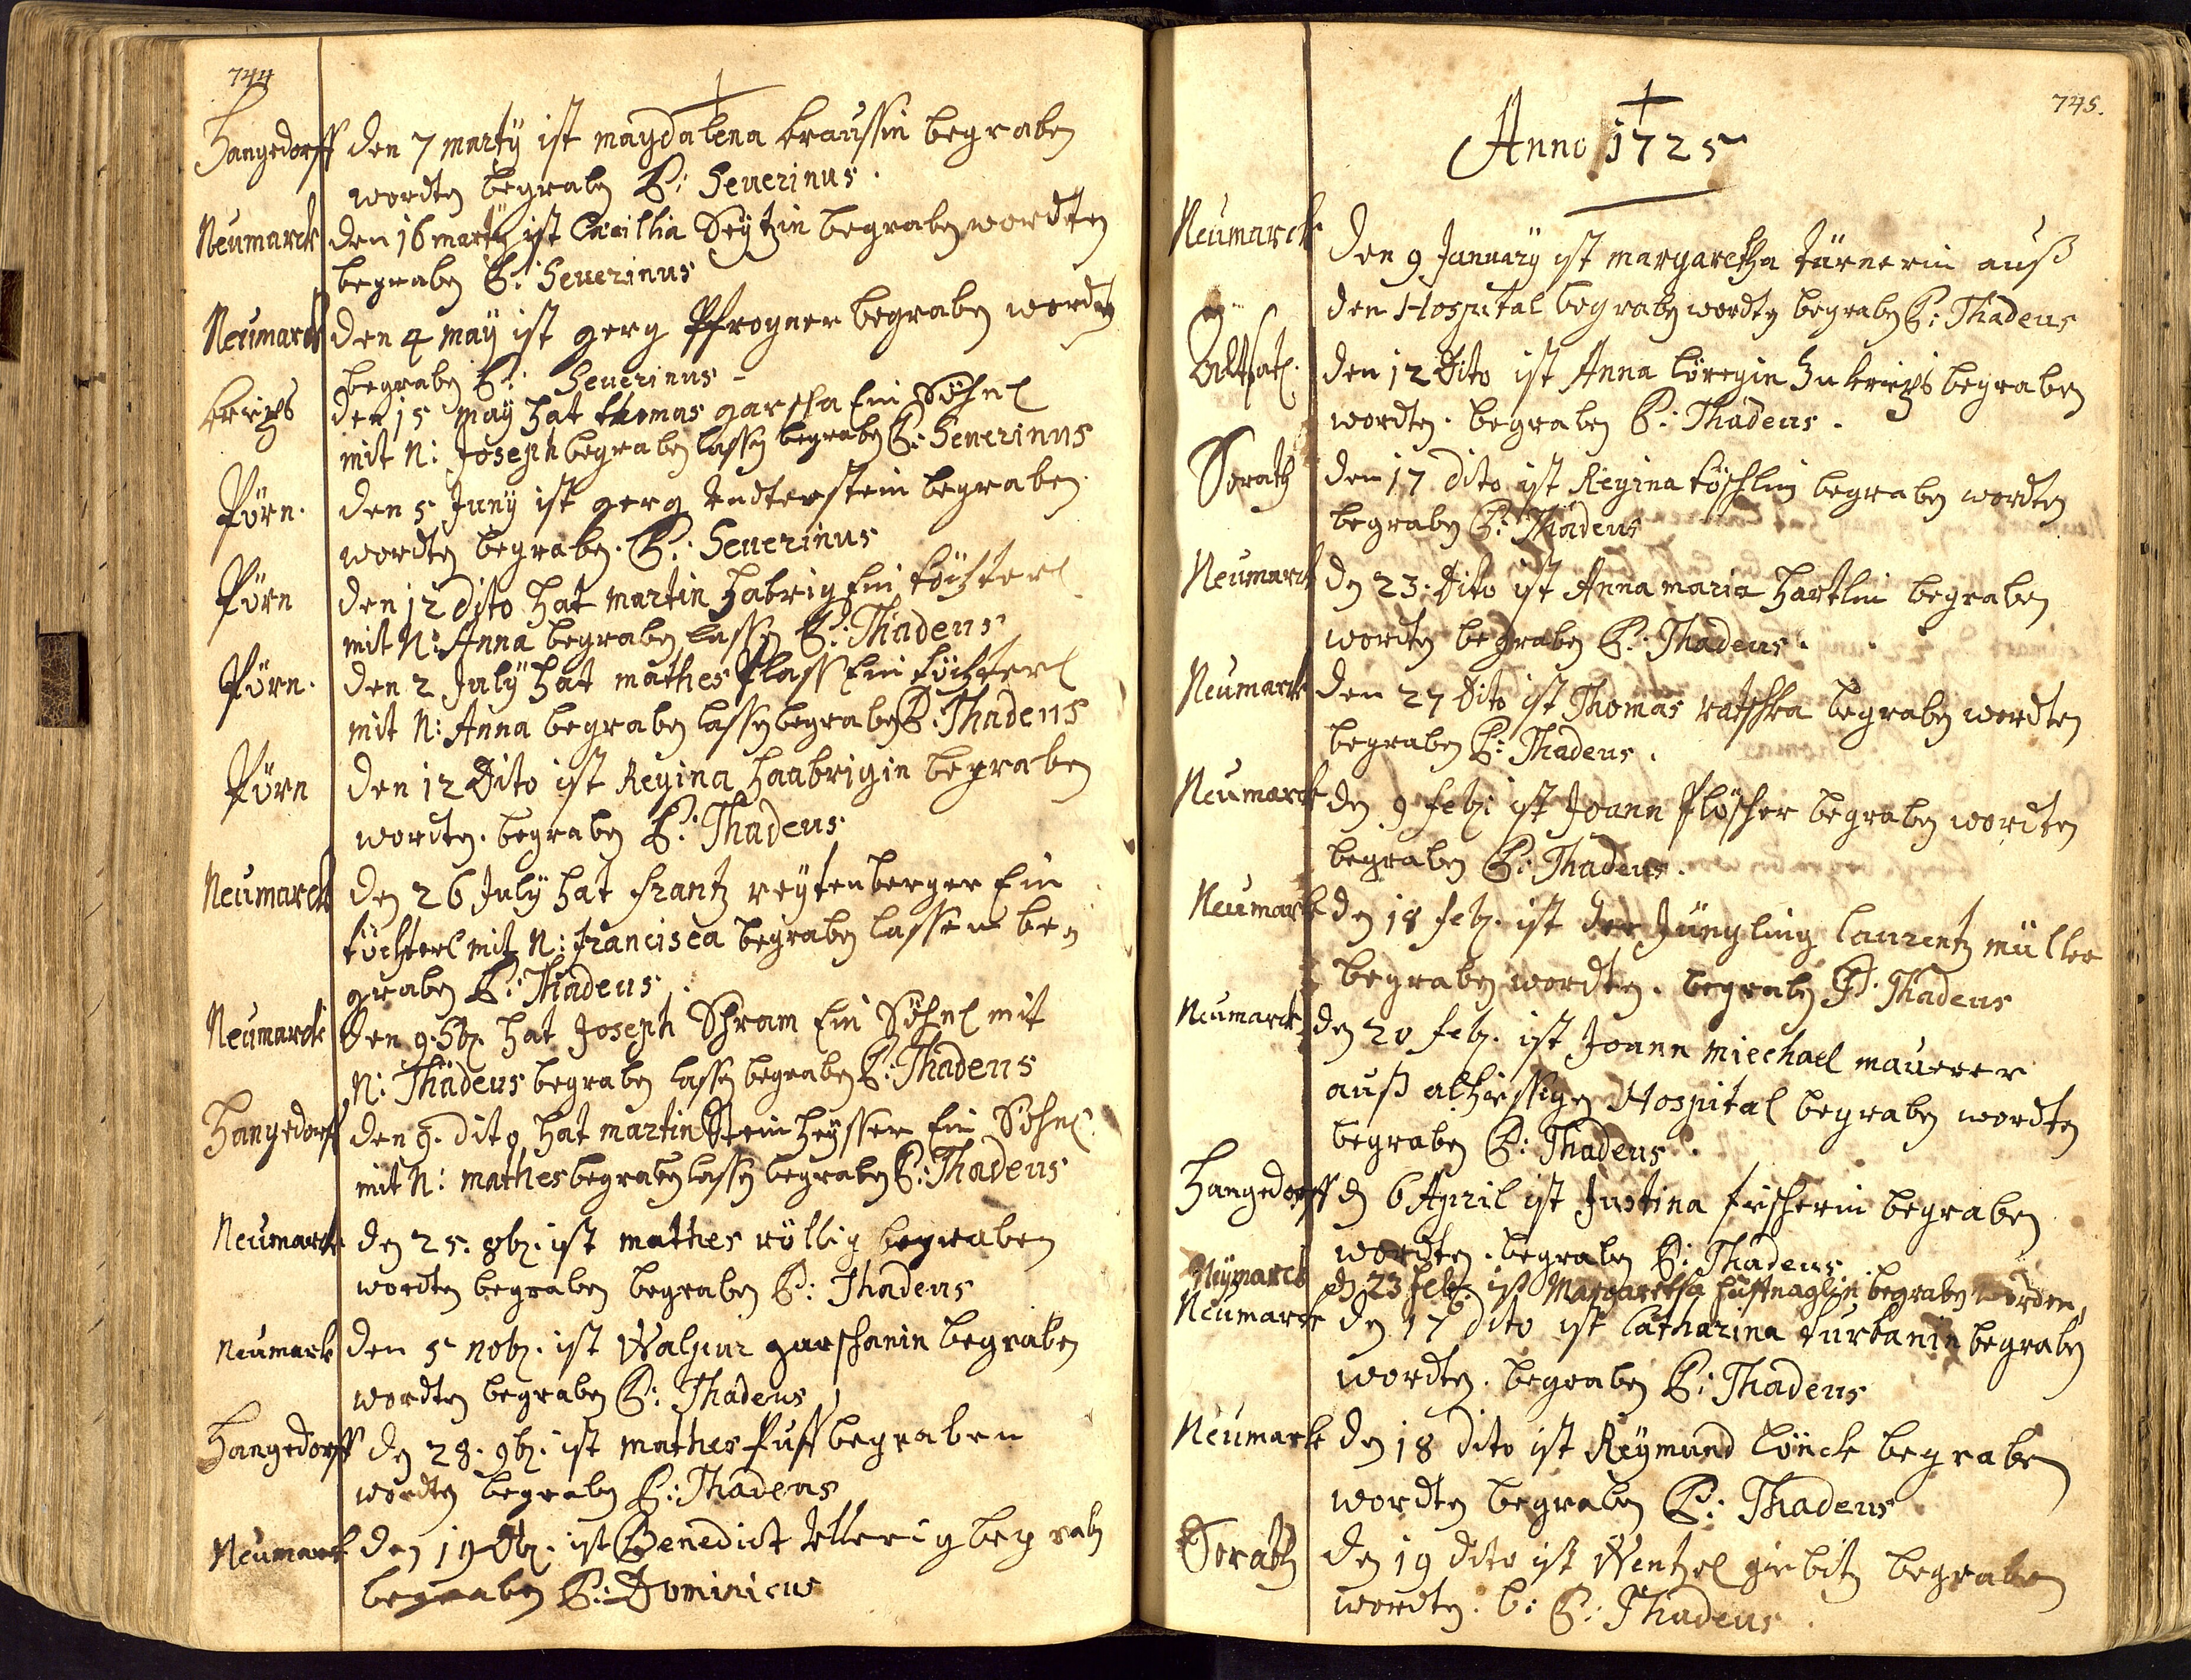 744
†
Hangedorff den 7 marty ist magdalena kraussin begraben
wordten begraben P: Severinus.
Neumarck den 16 marty ist Cäcillia Seytzin begraben wordten
begraben P: Severinus
Neumarck den 4 may ist gerg Pfrogner begraben wordten
begraben P: Severinus -
krips den 15 may hat thomas garscha Ein Söhnl
mit N: Joseph begraben lassen begraben P: Severinus
Pörn. den 5 Juny ist gerg begraben
wordten begraben. P: Severinus
Pörn den 12 dito hat martin habrig Ein töchterl
mit N: Anna begraben lassen P: Thadeus
Pörn. den 2 July hat mathes Plass Ein töchterl
mit N: Anna begraben lassen begraben P: Thadeus
Pörn den 12 Dito ist Regina haabrigin begraben
wordten. begraben P: Thadeus
Neumarck den 26 July hat frantz reytenberger Ein
töchterl mit N: francisca begraben lassen be
graben P: Thadeus.
Neumarck den 9. hat Joseph Schram Ein Söhnl mit
N: Thädeus begraben lassen begraben P: Thadeus
Hangedorff den 9. dito hat martin Steinheysser Ein Söhnl
mit N: mathes begraben lassen begraben P: Thadeus
Neumarck den 25. 8b. ist mathes röllig begraben
wordten begraben begraben P: Thadeus
Neumark den 5 nob. ist Walpur garschanin begraben
wordten begraben P: Thadeus
Hangedorff den 28. 9b. ist mathes Puff begraben
wordten begraben P: Thadeus
Neumark den 19 ist Benedict tellerig begraben
begraben P: Dominicus
745.
†
Anno 1725
Neumarck den 9 January ist margaretha türnerin auß
den Hospital begraben wordten begraben P: Thadeus
den 12 Dito ist Anna löregin zu krips begraben
wordten. begraben P: Thadeus.
Serath den 17 dito ist Regina töschlin begraben wordten
begraben P: Thädeus
Neumarck den 23. Dito ist Anna maria hartlin begraben
wordten begraben P: Thadeus.
Neumarck den 27 Dito ist Thomas ratschka begraben wordten
begraben P: Thadeus.
Neumarck den 9 feb: ist Joann Plöscher begraben wordten
begraben P: Thadeus.
Neumark den 18 feb. ist der Jüngling laurentz müller
begraben wordten. begraben P: Thadeus
Neumarck den 20 feb. ist Joann miechael mauerer
auß alhiessigen Hospital begraben wordten
begraben P: Thadeus.
Hangedorff den 6 April ist Justina fischerin begraben
wordten. begraben P: Thadeus
Neymarck den 23 feb. ist Margaretha hufnaglin begraben worden,
Neumarck den 17 dito ist Catharina turbanin begraben
wordten. begraben P: Thadeus
Neumark den 18 dito ist Reymund lönck begraben
wordten begraben P: Thadeus
Serath den 19 dito ist Wentzel girbitz begraben
wordten. b: P: Thadeus.